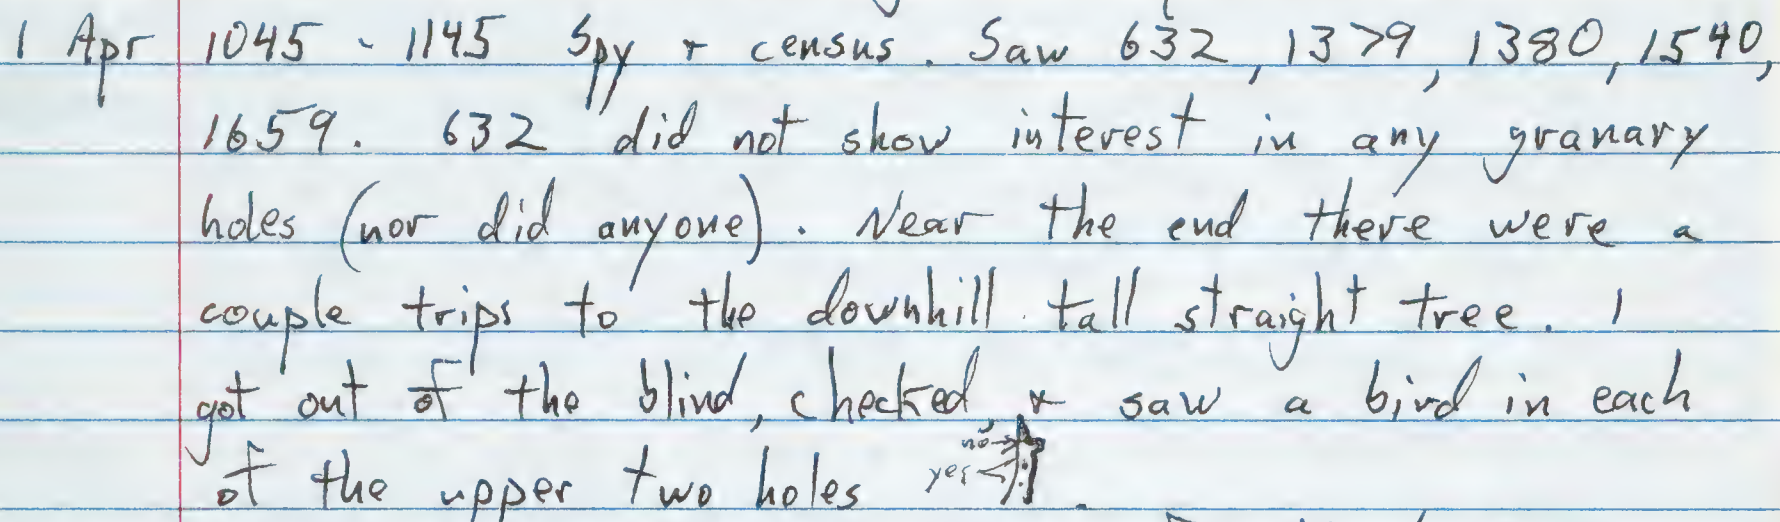 1 Apr 1045 - 1145 Spy + census. Saw 632, 1379, 1380, 1540,
1659. 632 did not show interest in any granary
holes (nor did anyone). Near the end there were a
couple trips to the downhill tall straight tree. I
got out of the blind, checked, + saw a bird in each
no
of the upper two holes yes .